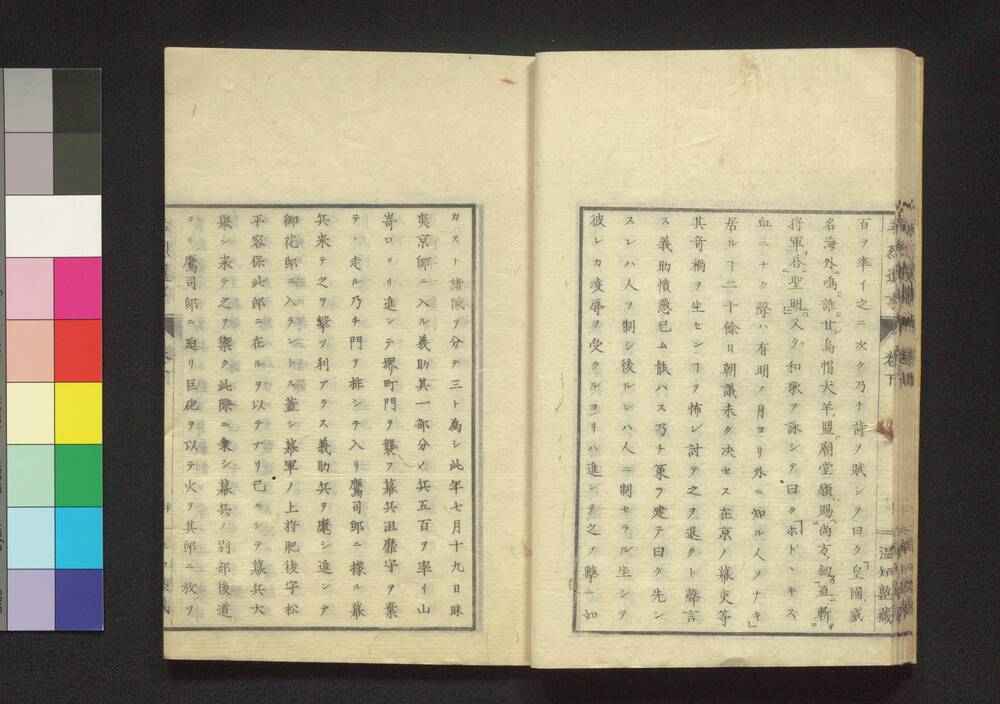 百ヲ率イ之ニ次ク乃チ詩ヲ賦シテ曰ク皇國威
名海外鳴誰甘烏帽犬羊盟廟堂願賜尚方劔直斬
将軍答聖明又タ和歌ヲ詠シテ曰クホトヽキス
血ニナク聲ハ有明ノ月ヨリ外ニ知ル人ソナキ
居ルヿ二十餘日朝議未タ决セス在京ノ幕吏等
其奇禍ヲ生センヿヲ怖レ討テ之ヲ退クト聲言
ス義助憤懣已ム能ハス乃チ策ヲ建テ曰ク先ン
スレハ人ヲ制シ後ルレハ人ニ制セラル坐シテ
彼レカ凌辱ヲ受クルヨリハ進ンテ之ヲ撃ニ如
卷下
温知塾藏
カスト諸隊ヲ分テ三ト為シ此年七月十九日昧
爽京師ニ入ル義助其一部分ノ兵五百ヲ率イ山
嵜口ヨリ進ンテ堺町門ヲ襲フ幕兵沮靡守ヲ葉
テ走ル乃チ門ヲ排シテ入リ鷹司邸ニ據ル幕
兵来テ之ヲ撃ツ利アラス義助兵ヲ麾シ進ンテ
御花邸ニ入ラントス蓋シ幕軍ノ上将肥後守松
平容保此邸ニ在ルヲ以テナリ已ニシテ幕兵大
舉シ来テ之ヲ禦ク此際ニ乗シ幕兵ノ別部後道
ヨリ鷹司邸ニ廻リ巨砲ヲ以テ火ヲ其邸ニ放ツ